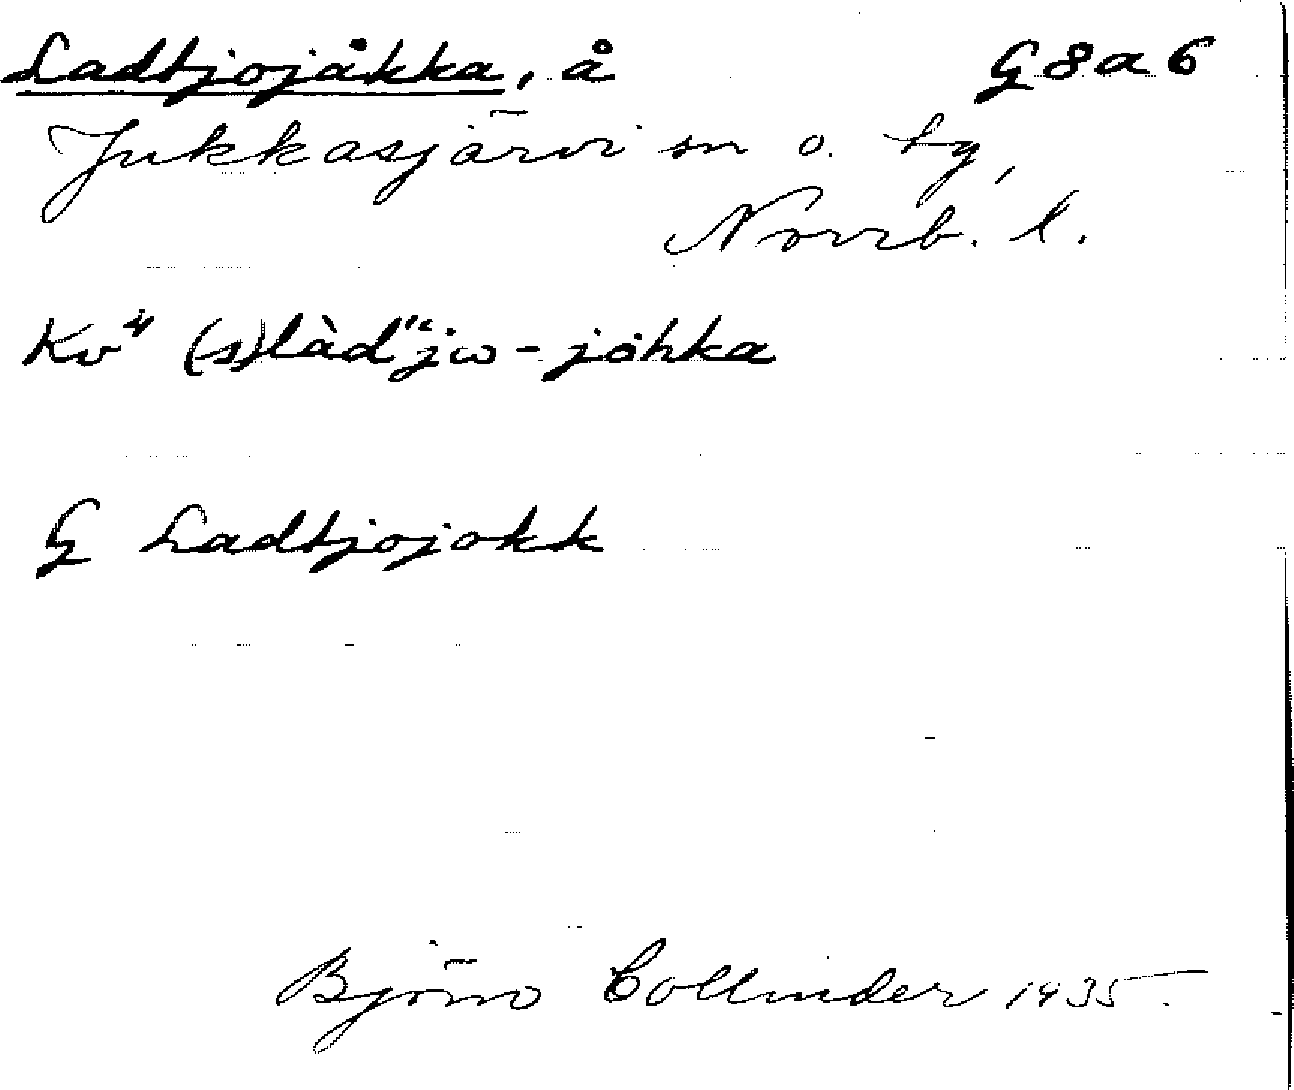 Ladtjojåkka, å G8a6
Jukkasjärvi sn o. tg,
Norrb. l.
Kv⁴ (s)làd"jω-jo̊hka
G Ladtjojokk
Björn Collinder 1935.